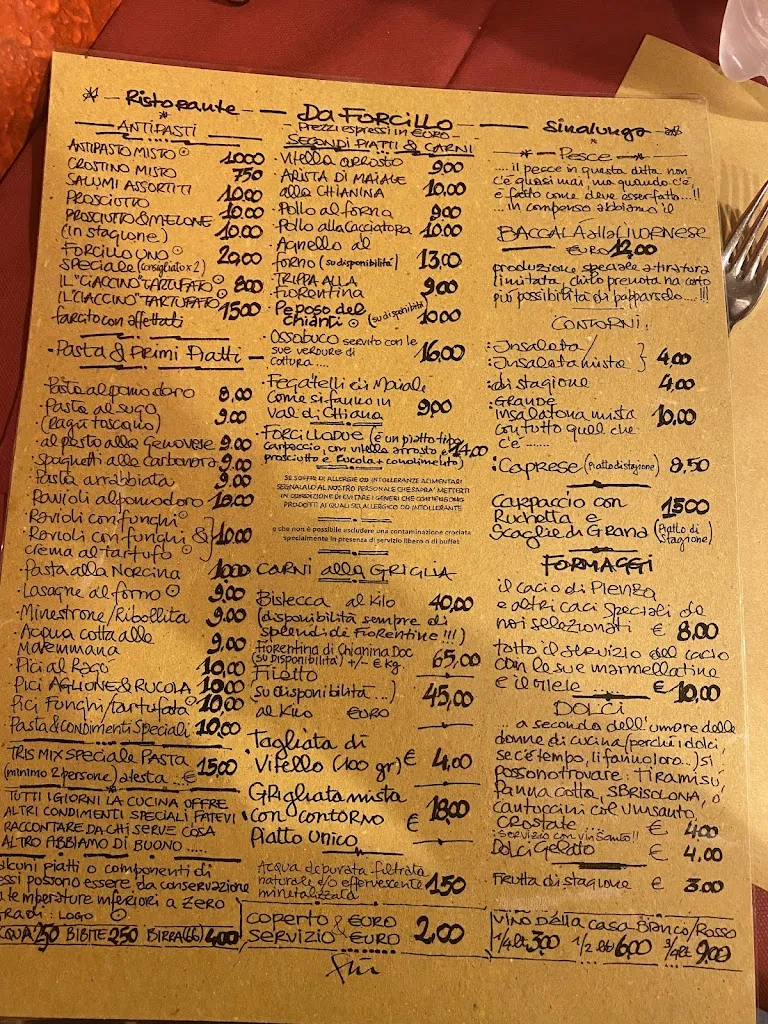 Ristorante - Da FORCILLO - Sinalunga
ANTIPASTI
ANTIPASTO MISTO 10,00
CROSTINO MISTO 7,50
SALUMI ASSORTITI 10,00
PROSCIUTTO 10,00
PROSCIUTTO & MELONE 10,00
(in stagione)
FORCILLO UNO 20,00
SPECIALE (consigliato x 2)
IL "CIACCINO" TARTUFATO 8,00
IL "CIACCINO" TARTUFATO 15,00
farcito con affettati
Pasta & Primi Piatti
Pasta al pomodoro 8,00
Pasta al sugo 9,00
(ragù toscano)
al pesto alla Genovese 9,00
Spaghetti alla Carbonara 9,00
Pasta arrabbiata 9,00
Ravioli al pomodoro 10,00
Ravioli con funghi
Ravioli con funghi & 10,00
crema al tartufo
Pasta alla Norcina 10,00
Lasagne al forno 9,00
Minestrone/Ribollita 9,00
Acqua cotta alla 9,00
Maremmana
Pici al Ragù 10,00
Pici AGLIONE & RUCOLA 10,00
Pici Funghi/tartufato 10,00
Pasta & condimenti Speciali 10,00
TRIS MIX SPECIALE PASTA
(minimo 2 persone) a testa... € 15,00
TUTTI I GIORNI LA CUCINA OFFRE
ALTRI CONDIMENTI SPECIALI FATEVI
RACCONTARE DA CHI SERVE COSA
ALTRO ABBIAMO DI BUONO .....
alcuni piatti o componenti di
essi possono essere da conservazione
a temperature inferiori a zero
GRADI: LOGO
ACQUA 2,50 BIBITE 2,50 BIRRA (66) 4,00
Prezzi espressi in €URO
SECONDI PIATTI & CARNI
Vitella arrosto 9,00
ARISTA DI MAIALE
alla CHIANINA 10,00
Pollo al forno 9,00
Pollo alla Cacciatora 10,00
Agnello al
forno (su disponibilità) 13,00
TRIPPA ALLA
Fiorentina 9,00
Peposo del
Chianti (su disponibilità) 10,00
Ossobuco servito con le
sue verdure di 16,00
cottura....
Fegatelli di Maiale
come si fanno in 9,00
Val di Chiana
FORCILLO DUE (è un piatto tipo
carpaccio, con vitella arrosto e 14,00
prosciutto e rucola + condimento)
SE SOFFRI DI ALLERGIE OD INTOLLERANZE ALIMENTARI
SEGNALALO AL NOSTRO PERSONALE CHE SAPRA' METTERTI
IN CONDIZIONE DI EVITARE I GENERI CHE CONTENGONO
PRODOTTI AI QUALI SEI ALLERGICO OD INTOLLERANTE
e che non è possibile escludere una contaminazione crociata
specialmente in presenza di servizio libero o di buffet
CARNI alla GRIGLIA
Bistecca al Kilo 40,00
(disponibilità sempre di
splendide Fiorentine !!!)
Fiorentina di Chianina Doc
(su disponibilità) +/- € Kg. 65,00
Filetto
(su disponibilità...) 45,00
al Kilo €URO
Tagliata di
Vitello (100 gr) € 4,00
GRigliata mista
con contorno € 18,00
Piatto unico
Acqua depurata filtrata
naturale e/o effervescente 1,50
mineralizzata
coperto & €URO
servizio €URO 2,00
fin
Pesce
.... il pecce in questa ditta non
c'è quasi mai, ma quando c'è,
è fatto come deve esser fatto...!!
... in compenso abbiamo il
BACCALÀ alla LIVORNESE
€URO 12,00
produzione speciale a tiratura
limitata, chi lo prenota ha certo
più possibilità di papparselo....!!!
CONTORNI:
Insalata/
Insalata mista } 4,00
di stagione 4,00
GRANDE
insalatona mista 10,00
con tutto quel che
c'è .......
Caprese (Piatto di stagione) 8,50
Carpaccio con 15,00
Ruchetta e
Scaglie di Grana (Piatto di
stagione)
FORMAGGI
il cacio di Pienza
e altri caci speciali da
noi selezionati € 8,00
tutto il servizio del cacio
con le sue marmellatine
e il miele € 10,00
DOLCI
... a secondo dell'umore delle
donne di cucina (perchè i dolci,
se c'è tempo, li fanno loro..) si
possono trovare: TIRAMISÙ,
Panna cotta, SBRISOLONA, o
cantuccini col Vinsanto,
CROSTATE € 4,00
:Servizio con vin Santo!!
DOLCI Gelato € 4,00
Frutta di stagione € 3,00
VINO DELLA CASA BIANCO/ROSSO
1/4 lt 3,00 1/2 lt 6,00 3/4 lt 9,00